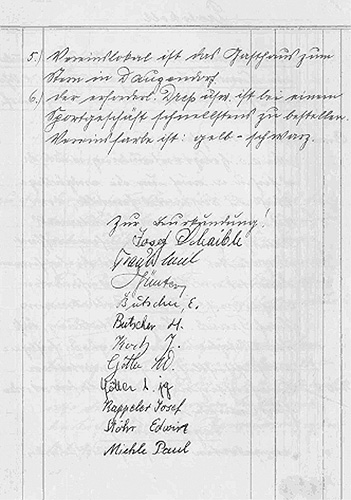 5.) Vereinslokal ist das Gasthaus zum
Stern in Daugendorf.
6.) Der erforderl. Dreß usw. ist bei einem
Sportgeschäft schnellstens zu bestellen.
Vereinsfarbe ist: gelb - schwarz.
Zur Beurkundung!
Josef Schaible
Paul
Günter
Butscher, E.
Butscher H.
Koch J.
W.
jg
Kappeler Josef
Stöhr Edwin
Miehle Paul